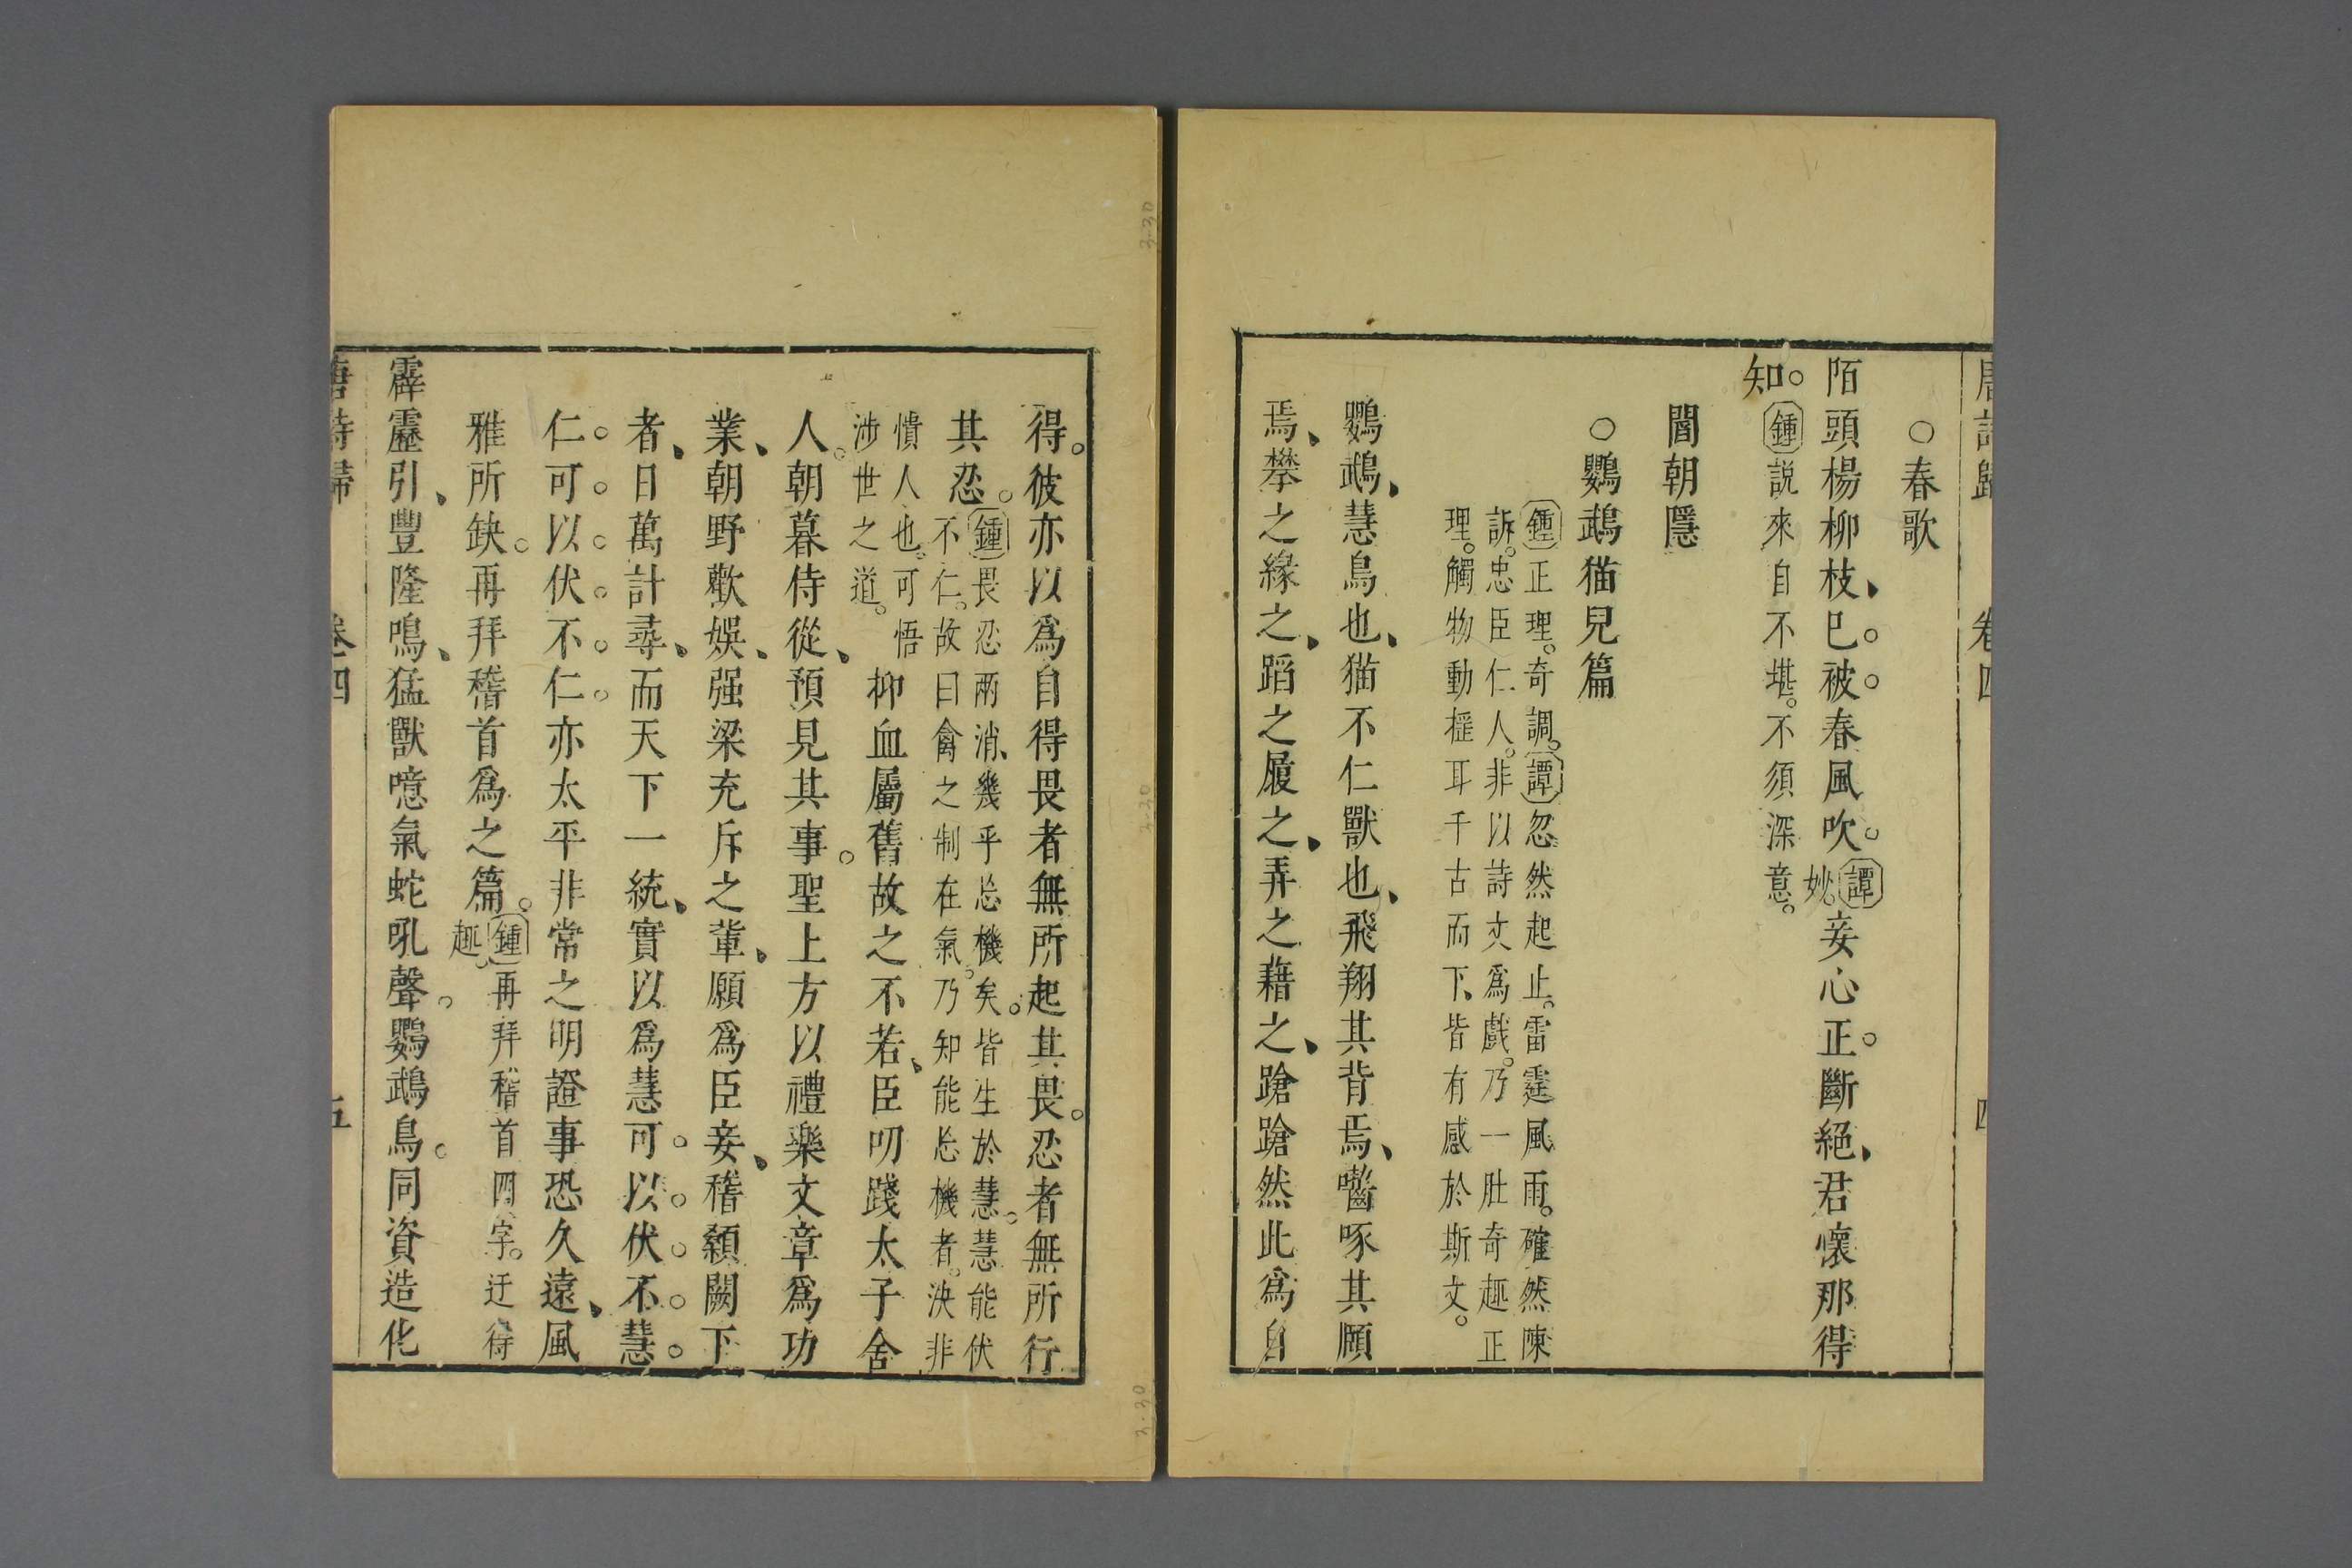 唐詩歸　卷四　四
○春歌
陌頭楊柳枝、已被春風吹。譚妙。妾心正斷絕、君懷那得
知。鍾說來自不堪。不須深意。
閻朝隱
○鸚鵡猫兒篇
鍾正理。奇調。譚忽然起止。雷霆風雨。確然陳
訴。忠臣仁人。非以詩文爲戲。乃一肚奇趣正
理。觸物動攉耳千古而下、皆有感於斯文。
鸚鵡、慧鳥也、猫不仁獸也、飛翔其背焉、嚙啄其頤
焉、攀之緣之、蹈之履之、弄之藉之、蹌蹌然此爲自
得。彼亦以爲自得畏者無所起其畏。忍者無所行
其忍。鍾畏忍兩消、幾乎忘機矣。皆生於慧。慧能伏
不仁。故曰禽之制在氣。乃知能忘機者。決非
憒人也。可悟
涉世之道。
抑血屬舊故之不若、臣叨踐太子舍
人。朝暮侍從、預見其事。聖上方以禮樂文章爲功
業、朝野歡娛、强梁充斥之軰、願爲臣妾、稽顙闕下
者、日萬計尋、而天下一統、實以爲慧可以伏不慧。
仁可以伏不仁亦太平非常之明證事恐久遠、風
雅所缺。再拜稽首爲之篇。鍾再拜稽首四字。迂得
趣。
霹靂引、豐隆鳴、猛獸噫氣蛇吼聲。鸚鵡鳥。同資造化
唐詩歸　卷四　五
3-30
3-30
3-30